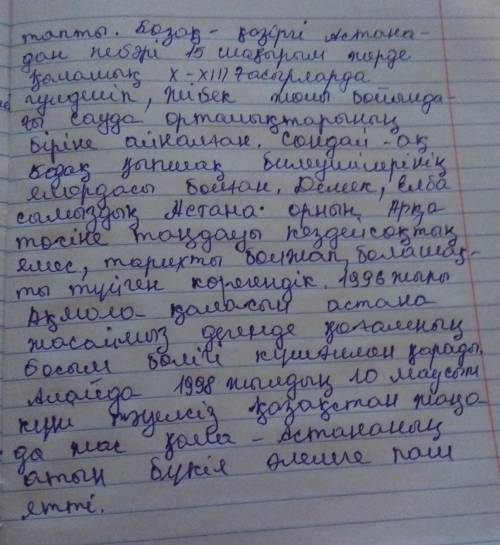 тапты. Бозақ - қазіргі Астана-
дан небәрі 15 шақырым жерде
Қаланың X-XIII ғасырларда
гүлденіп, Жібек жолы бойында-
ғы сауда орталықтарының
біріне айналған. Сондай-ақ
Бозақ қыпшақ билеушілерінің
ялордасы болған. Демек, Елба
сымыздың Астана орнын Арқа
төсіне таңдауы кездейсоқтық
ямес, тарихты болжап, болашақ-
ты түйген көрегендік. 1996 жылы
Ақмола қаласын астана
жасаймыз дегенде қоғамның
басым бөлігі күмәнмен қарады.
Алайда 1998 жылдың 10 маусым
күні тәуелсіз Қазақстан жаңа
да жас қала - Астананың
атын бүкіл әлемге паш
ятті.